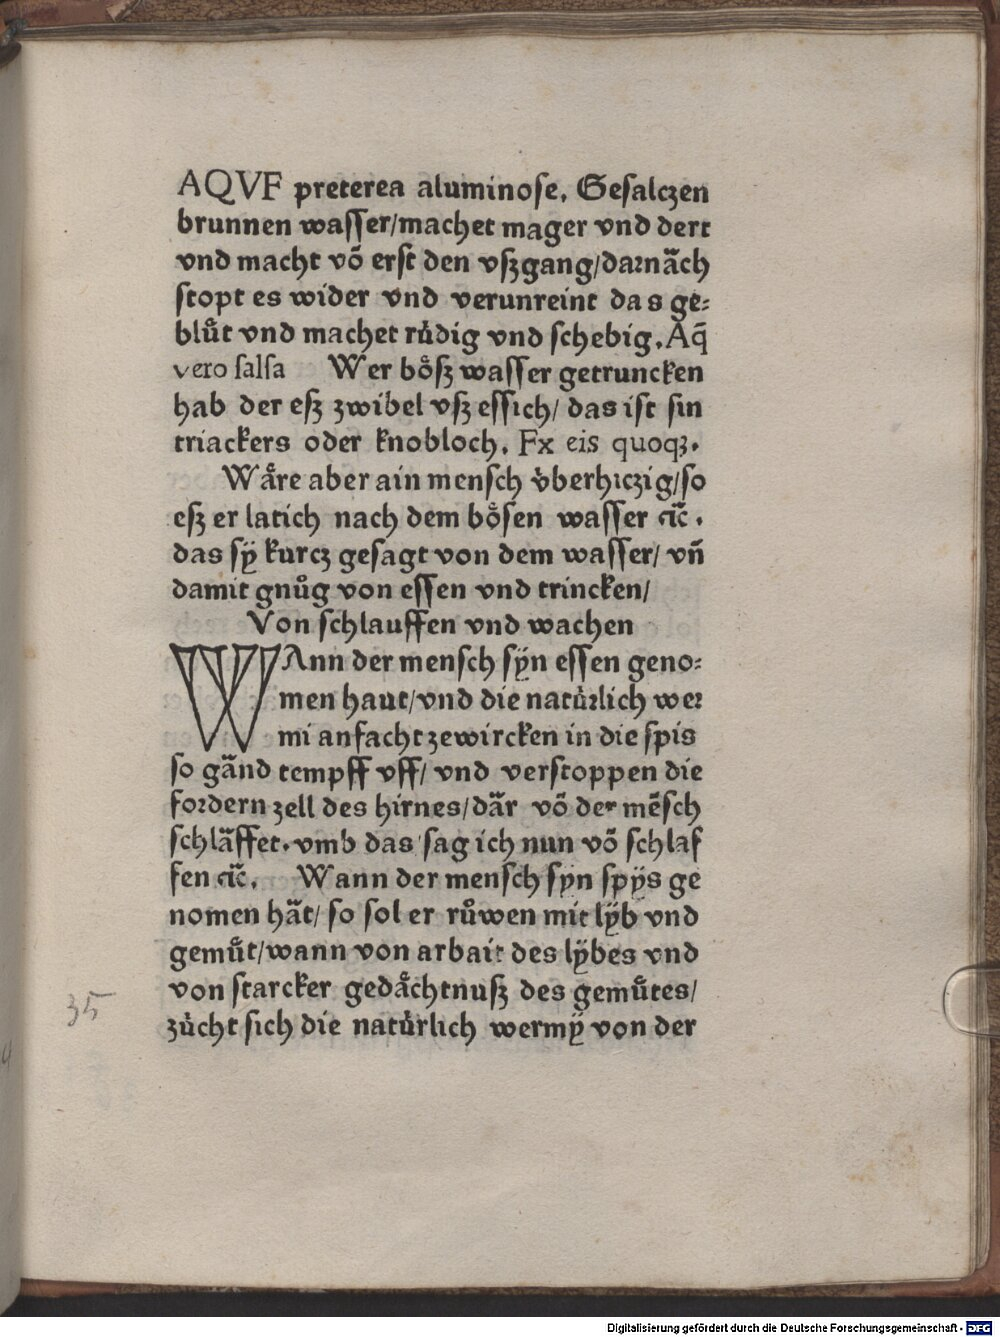 AQVE preterea aluminose. Gesalczen
brunnen wasser/machet mager vnd dert
vnd macht võ erst den vßgang/darnǎch
stopt es wider vnd verunreint das ge⸗
blůt vnd machet růdig vnd schebig. Aq̃
vero salsa Wer bo̊ß wasser getruncken
hab der eß zwibel vß essich/ das ist sin
triackers oder knobloch. Ex eis quoqȝ.
Wåre aber ain mensch v̊berhiczig/so
eß er latich nach dem bo̊sen wasser ⁊c̃.
das sÿ kurcz gesagt von dem wasser/ vñ
damit gnůg von essen vnd trincken/
Von schlauffen vnd wachen
WAnn der mensch sÿn essen geno⸗
men haut/vnd die natůrlich wer
mi anfacht zewircken in die spis
so gǎnd tempff vff/ vnd verstoppen die
fordern zell des hirnes/dǎr võ der mẽsch
schlǎffet. vmb das sag ich nun võ schlaf
fen ⁊c̃. Wann der mensch sÿn spÿs ge
nomen hǎt/ so sol er růwen mit lÿb vnd
gemůt/wann von arbait des lÿbes vnd
von starcker gedåchtnuß des gemůtes/
zůcht sich die natůrlich wermÿ von der
35
Digitalisierung gefördert durch die Deutsche Forschungsgemeinschaft - DFG